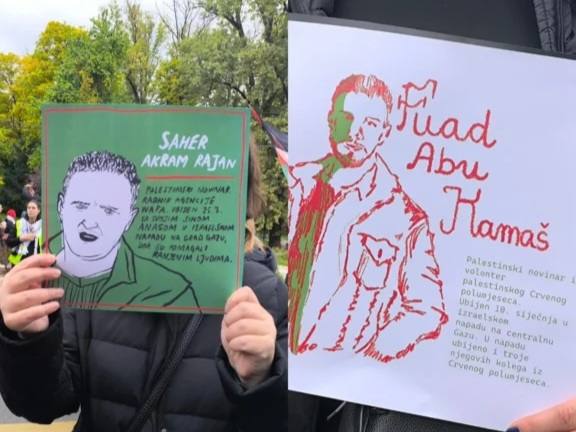 SAHER
AKRAM RAJAN
PALESTINSKI NOVINAR
RADNIK AGENCIJE
WAFA. UBIJEN 25.3.
SA SVOJIM SINOM
ANASOM U IZRAELSKOM
NAPADU NA GRAD GAZU,
DOK SU POMAGALI
RANJENIM LJUDIMA.
Fuad
Abu
Kamaš
Palestinski novinar i
volonter
palestinskog Crvenog
polumjeseca.
Ubijen 10. siječnja u
izraelskom
napadu na centralnu
Gazu. U napadu
ubijeno i troje
njegovih kolega iz
Crvenog polumjeseca.